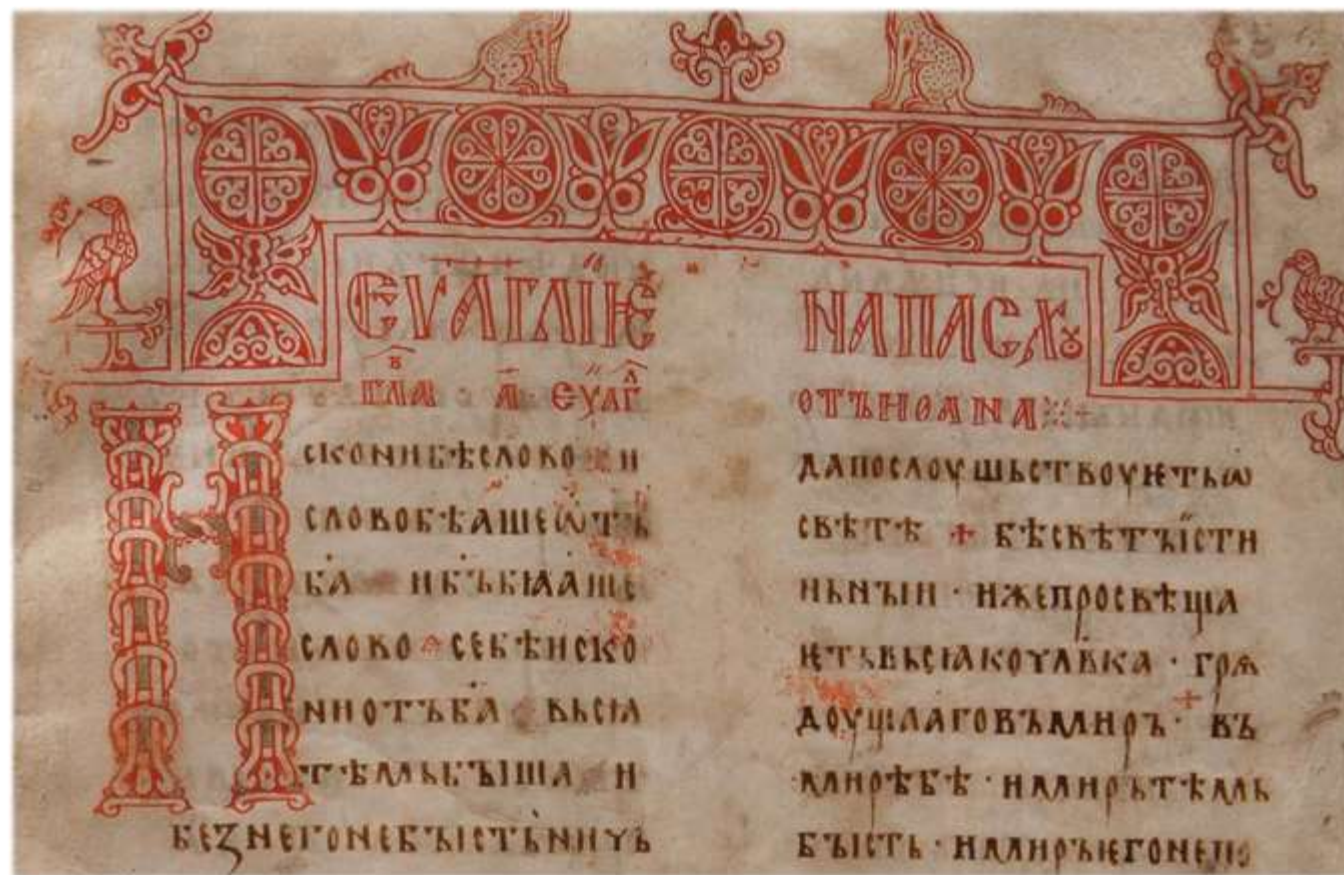 ЕѴАГЛІѤ
ГЛА В · А ЕУАГЛ
ИСКОНИБѢСЛОВО И
СЛОВОБѢАШЕѠТЪ
БА ИБЪБꙖАШЕ
СЛОВО СЕБѢИСКО
НИОТЪБА ВЬСꙖ
ТѢМЬБꙐША И
БЕЗНЕГОНЕБꙐСТЬНИЧЬ
НАПАСХꙊ
ОТЪИОАНА
ДАПОСЛОУШЬСТВОУѤТЬѠ
СВѢТѢ + БѢСВѢТЪІСТИ
НЬНꙐИ · ИЖЕПРОСВѢЩА
ѤТЬВЬСꙖКОЧЛВКА · ГРѦ
ДОУЩААГОВЪМИРЪ · ВЪ
МИРѢБѢ · ИМИРЪТѢМЬ
БꙐСТЬ · ИМИРЪѤГОНЕПО